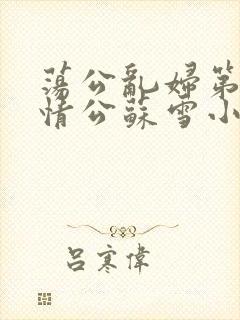 蕩公亂婦第
情公蘇雪小
呂寒偉